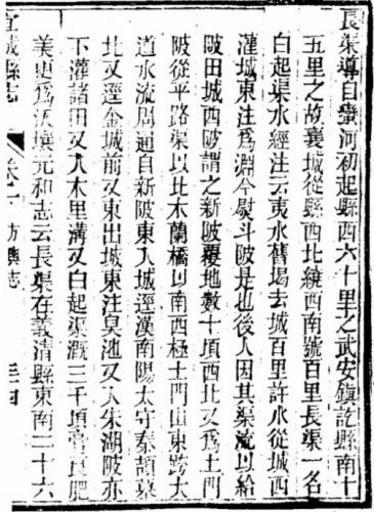 長渠導自蠻河初起縣西六十里之武安鎮訖縣南十
五里之故襄城從縣西北繞西南號百里長渠一名
白起渠水經注云夷水舊堨去城百里許水從城西
灌城東注爲淵今熨斗陂是也後人因其渠流以給
陂田城西陂謂之新陂覆地數十頃西北又爲土門
陂從平路渠以北木蘭橋以南西極土門山東跨大
道水流周通自新陂東入城逕漢南陽太守秦頡墓
北又逕金城前又東出城東注臭池又入朱湖陂亦
下灌諸田又入木里溝又白起渠溉三千頃膏良肥
美更爲沃壤元和志云長渠在義清縣東南二十六
宜城縣志
卷一 方輿志
三四